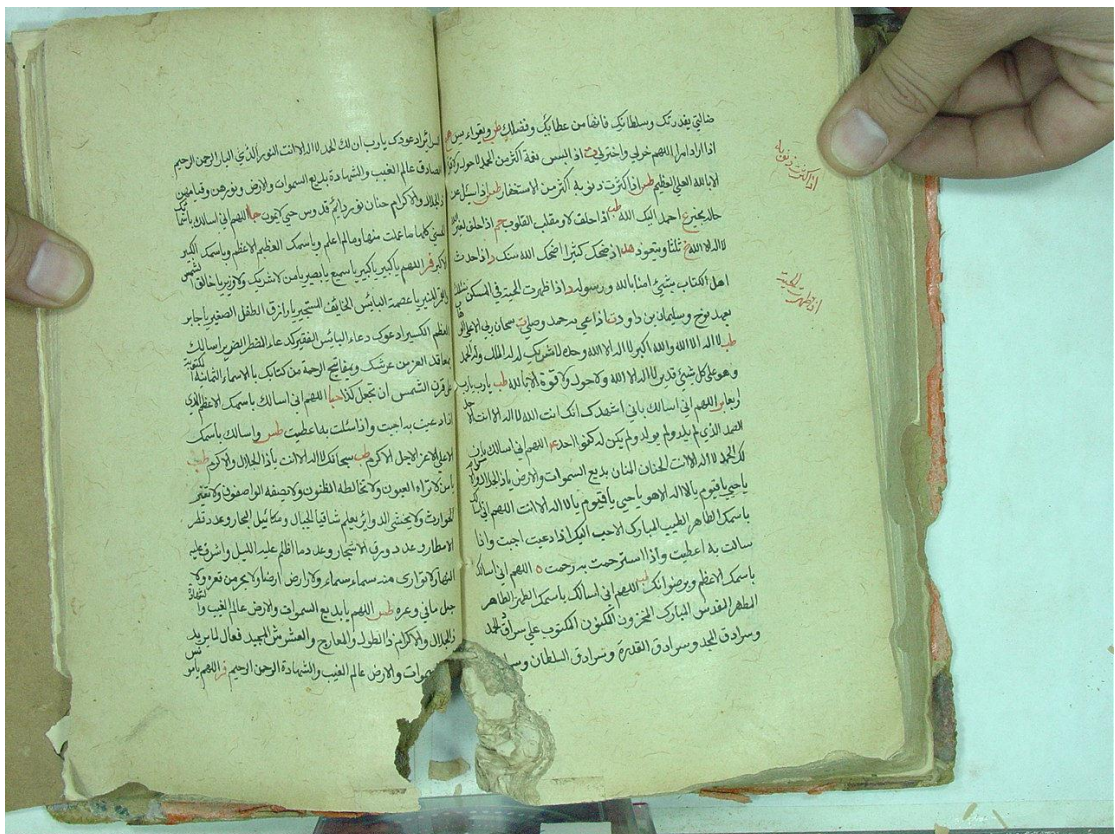 ضالتي بقدرتك وسلطانك فانها من عطائك وفضلك طر ويقواء بس
اذا اراد امرا اللهم خر لي واختر لي ت اذا التبس نعمة اكثر من الحمد لا حول ولا قوة
الا بالله العلي العظيم طس اذا كثرت ذنوبه اكثر من الاستغفار طس اذا سئل عن
حاله بخير احمد اليك الله طب اذا حلف لا ومقلب القلوب خ اذا حلف
لا اله الا الله ثلثا ويتعوذ هد اذا ضحك كثيرا اضحك الله سنك د اذا حدث
اهل الكتاب بشيئ امنا بالله ورسوله د اذا ظهرت الحية في المسكن
بعهد نوح وسليمان بن داود ت اذا عي به حمد وصلى ت سبحان ربي الاعلى
طب لا اله الا الله والله اكبر لا اله الا الله وحده لا شريك له له الملك وله الحمد
وهو على كل شيئ قدير لا اله الا الله ولا حول ولا قوة الا بالله طب يا رب يا رب
اللهم اني اسالك باني اشهدك انك انت الله لا اله الا انت
الصمد الذي لم يلد ولم يولد ولم يكن له كفوا احد عه اللهم اني اسالك بان
لك الحمد لا اله الا انت الحنان المنان بديع السموات والارض يا ذا الجلال والا
يا حي يا قيوم يا لا اله الا هو يا حي يا قيوم يا لا اله الا انت اللهم اني
باسمك الطاهر الطيب المبارك الاحب اليك اذا دعيت اجبت واذا
سالت به اعطيت واذا استرحمت به رحمت ه اللهم اني اسالك
باسمك الاعظم وبرضوانك طب اللهم اني اسالك باسمك الطهر الطاهر
المطهر المقدس المبارك المخزون المكنون المكتوب على سرادق الحمد
وسرادق المجد وسرادق القدرة وسرادق السلطان
اذا كثرت ذنوبه
اذا ظهرت الحية
ادعوك يا رب ان لك الحمد لا اله الا انت النور البار الرحمن الرحيم
الصادق عالم الغيب والشهادة بديع السموات والارض ونورهن وقيامهن
ذا الجلال والاكرام حنان نور دايم قدوس حي لا يموت حا اللهم اني اسالك
الحسنى كلها ما علمت منها وما لم اعلم وباسمك العظيم الاعظم وباسمك الكبير
الاكبر فر اللهم يا كبير يا كبير يا سميع يا بصير يا من لا شريك له ولا وزير يا خالق الشمس
والقمر المنير يا عصمة البايس الخايف المستجير يا رازق الطفل الصغير يا جابر
العظم الكسير ادعوك دعاء البائس الفقير كدعاء المضطر الضرير اسالك
بمعاقد العز من عرشك وبمفاتيح الرحمة من كتابك بالاسماء الثمانية المكتوبة
على قرن الشمس ان تجعل كذا حبا اللهم اني اسالك باسمك الاعظم الذي
اذا دعيت به اجبت واذا سئلت به اعطيت طس واسالك باسمك
الاعلى الاعز الاجل الاكرم طب سبحانك لا اله الا انت يا ذا الجلال والاكرم طب
يا من لا تراه العيون ولا تخالطه الظنون ولا تصفه الواصفون ولا تغيره
الحوادث ولا يخشى الدوائر يعلم مثاقيل الجبال ومكائيل البحار وعدد قطر
الامطار وعدد ورق الاشجار وعدد ما اظلم عليه الليل واشرق عليه
النهار لا توارى منه سماء سماء ولا ارض ارضا ولا بحر من قعره ولا
جبل ما في وعره طس اللهم يا بديع السموات والارض عالم الغيب والشهادة
ذا الجلال والاكرام ذا الطول والمعارج والعرش المجيد فعال لما يريد
السموات والارض عالم الغيب والشهادة الرحمن الرحيم فر اللهم